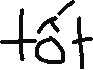 tốt